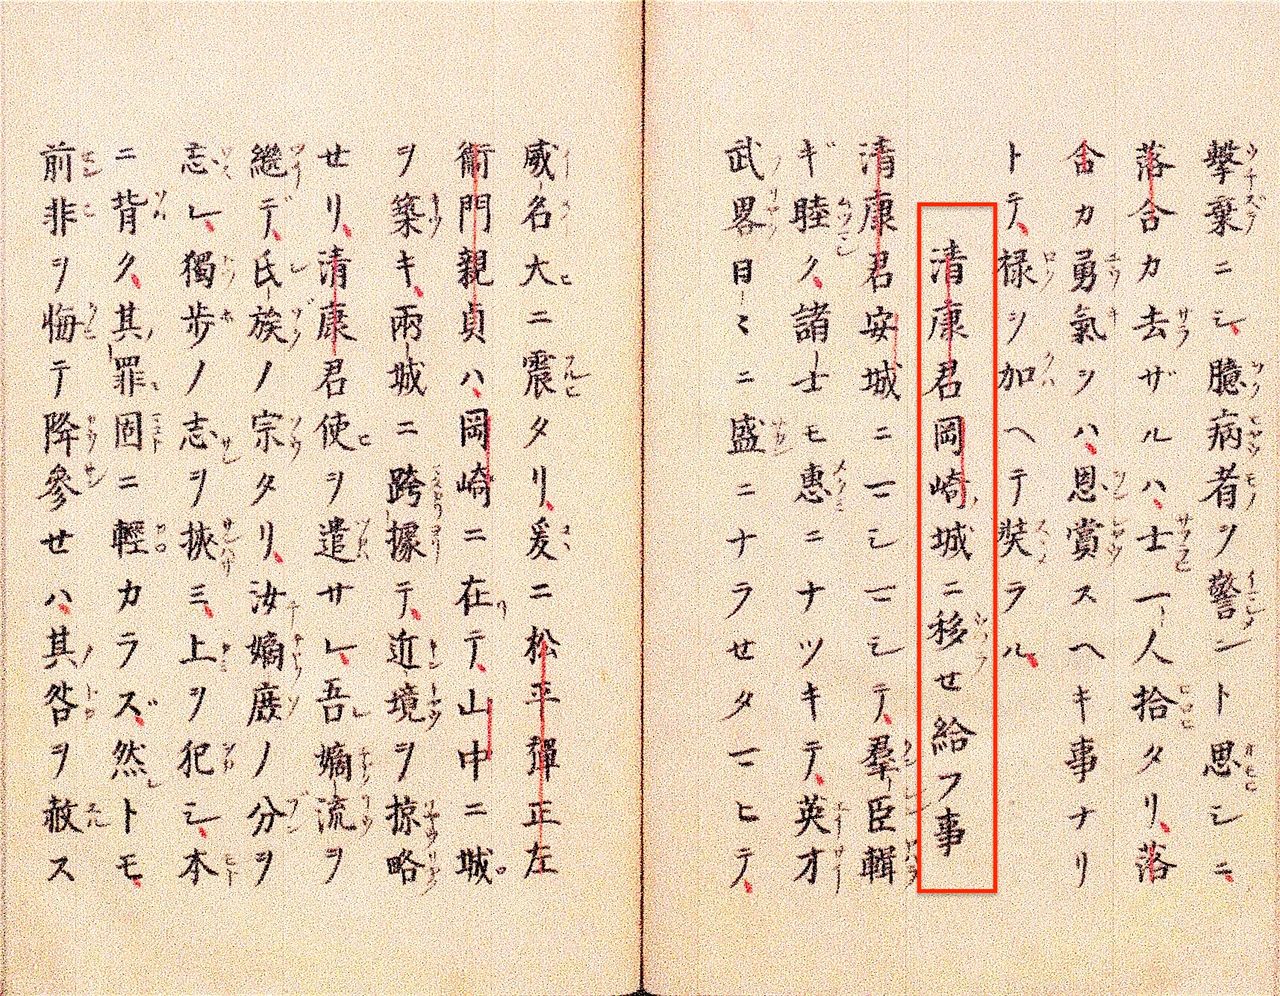 撃棄ニシ、臆病者ヲ警ント思シニ、
落合カ去ザルハ、士一人拾タリ、落
合カ勇氣ヲハ、恩賞スヘキ事ナリ
トテ、禄ヲ加ヘテ奘ラル、
清康君岡崎城ニ移せ給フ事
清康君安城ニマシマシテ、羣臣輯
ギ睦ク、諸士モ惠ニナツキテ、英才
武畧日〻ニ盛ニナラせタマヒテ、
威名大ニ震タリ、爰ニ松平彈正左
衞門親貞ハ、岡崎ニ在テ、山中ニ城
ヲ築キ、兩城ニ跨據テ、近境ヲ掠略
せリ、清康君使ヲ遣サレ、吾嫡流ヲ
繼デ、氏族ノ宗タリ、汝嫡庶ノ分ヲ
忘レ、獨歩ノ志ヲ挾ミ、上ヲ犯シ、本
ニ背ク、其罪固ニ輕カラズ、然トモ、
前非ヲ悔テ降參せハ、其咎ヲ赦ス